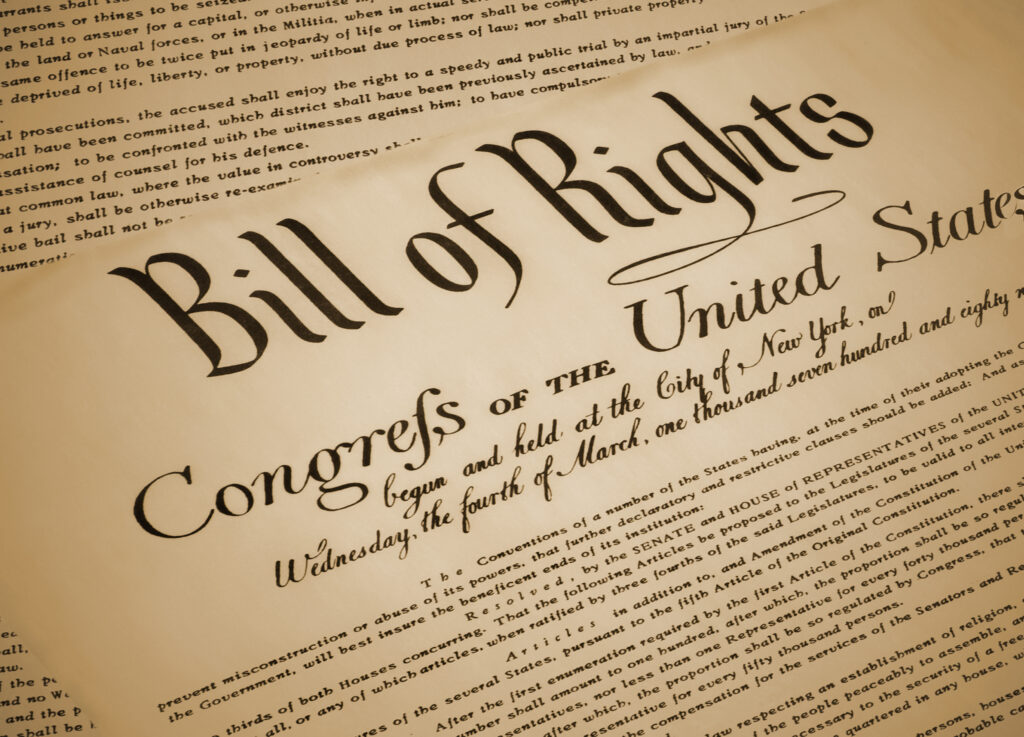 arrants shall is
persons or things to be seized
be held to answer for a capital, or otherwise
the land or Naval forces, or in the Militia, when in actual
same offence to be twice put in jeopardy of life or limb; nor shall be compe
deprived of life, liberty, or property, without due process of law; nor shall private property
al prosecutions, the accused shall enjoy the right to a speedy and public trial by an impartial jury of the
all have been committed, which district shall have been previously ascertained by law,
sation; to be confronted with the witnesses against him; to have compulsory
assistance of counsel for his defence.
at common law, where the value in controversy shall
a jury, shall be otherwise re-exami
ive bail shall not be
numerati
Bill of Rights
Congreſs OF THE United States
begun and held at the City of New York, on
Wednesday, the fourth of March, one thousand seven hundred and eighty n
The Conventions of a number of the States having, at the time of their adopting the C
prevent misconstruction or abuse of its powers, that further declaratory and restrictive clauses should be added: And as
the Government, will best insure the beneficent ends of its institution:
Resolved, by the SENATE and HOUSE of REPRESENTATIVES of the UNIT
thirds of both Houses concurring. That the following Articles be proposed to the Legislatures of the several S
all, or any of which articles, when ratified by three fourths of the said Legislatures, to be valid to all inte
Articles in addition to, and Amendment of the Constitution of the Uni
res of the several States, pursuant to the fifth Article of the Original Constitution.
After the first enumeration required by the first Article of the Constitution, there s
umber shall amount to one hundred, after which, the proportion shall be so regul
sentatives, nor less than one Representative for every forty thousand per
after which, the proportion shall be so regulated by Congress, that
resentative for every fifty thousand persons.
the compensation for the services of the Senators and Re
law respecting an establishment of religion,
of the people peaceably to assemble, an
necessary to the security of a free
quartered in any house,
persons, house
probable ca
all,
aw.
of the p
nd no W
and the p
shall be